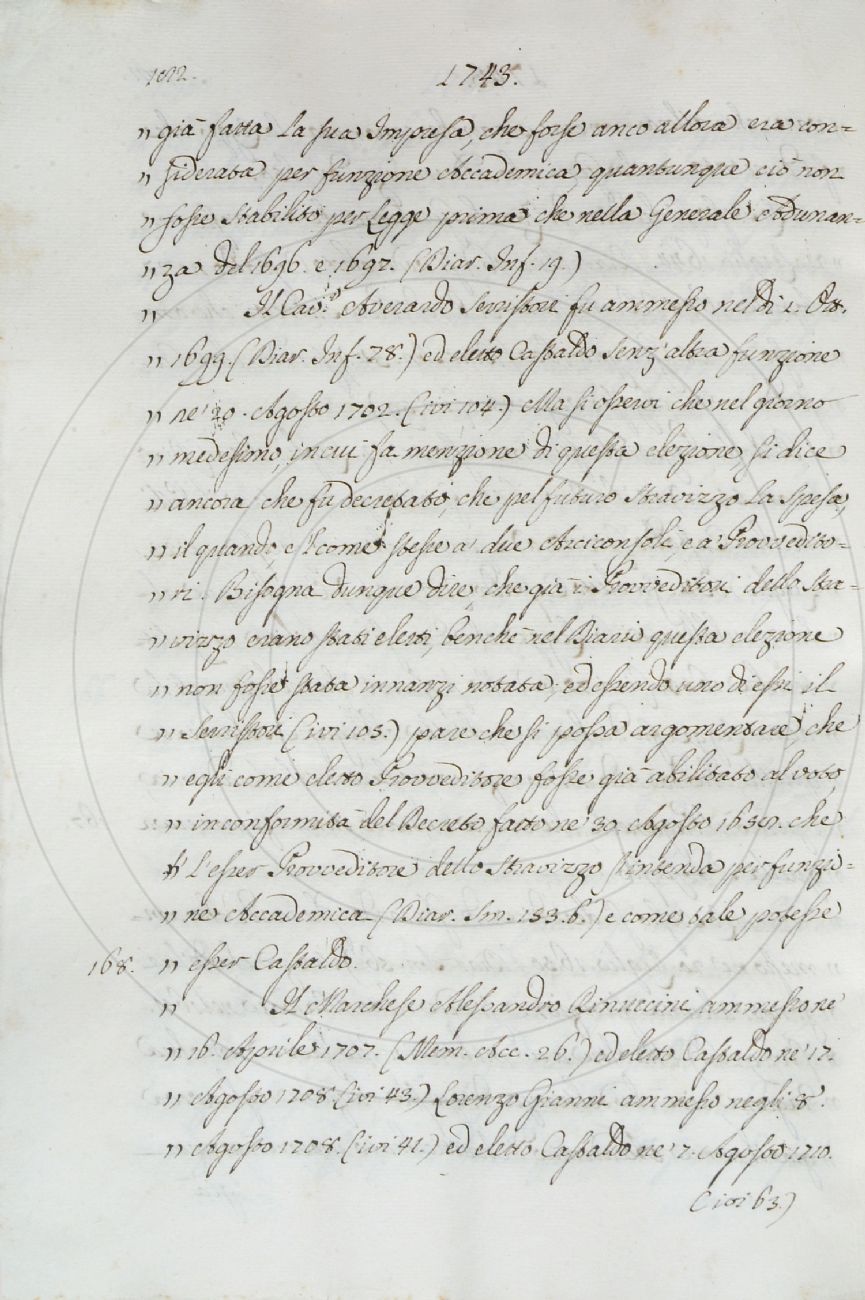 1743.
" già fatta la sua Impresa, che forse anco allora era con=
" siderata per funzione Accademica, quantunque ciò non
" fosse stabilito per Legge prima che nella Generale Adunan=
" za del 1696. e 1697. (Diar. Inf. 19.)
" Il Cav.e Averardo Serristori fu ammesso nel dì 1. Ott.
" 1699. (Diar. Inf. 78.) ed eletto Castaldo senz'altra funzione
" ne' 20. Agosto 1702. (ivi 104.) Ma si osservi che nel giorno
" medesimo, in cui fa menzione di questa elezione, si dice
" ancora, che fu decretato, che pel futuro Stravizzo la spesa,
" il quando, e 'l come stesse a' due Arciconsoli, e a' Provvedito=
" ri. Bisogna dunque dire, che già i Provveditori dello Stra=
" vizzo erano stati eletti, benchè nel Diario questa elezione
" non fosse stata innanzi notata; ed essendo uno di essi il
" Serristori (ivi 105.) pare che si possa argomentare, che
" egli come eletto Provveditore fosse già abilitato al voto,
" in conformità del Decreto fatto ne' 30. Agosto che
" l'esser Provveditore dello Stravizzo s'intenda per funzio=
" ne Accademica (Diar. Sm. 133. b.) e come tale potesse
168. " esser Castaldo.
" Il Marchese Alessandro Rinuccini ammesso ne'
" 16. Aprile 1707. (Mem. Acc. 26.) ed eletto Castaldo ne' 17.
" Agosto 1708 (ivi 43.) Lorenzo Gianni ammesso negli 8.
" Agosto 1708. (ivi 41.) ed eletto Castaldo ne' 7. Agosto 1710.
(ivi 63.)